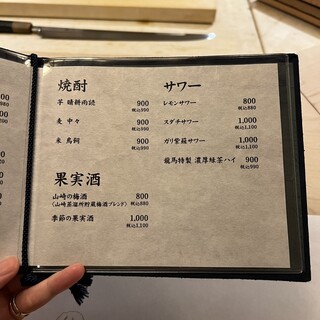 焼酎
芋 晴耕雨読 900
税込990
麦 中々 900
税込990
米 鳥飼 900
税込990
果実酒
山崎の梅酒 800
(山崎蒸溜所貯蔵梅酒ブレンド) 税込880
季節の果実酒 1,000
税込1,100
サワー
レモンサワー 800
税込880
スダチサワー 1,000
税込1,100
ガリ紫蘇サワー 1,000
税込1,100
龍馬特製 濃厚緑茶ハイ 900
税込990